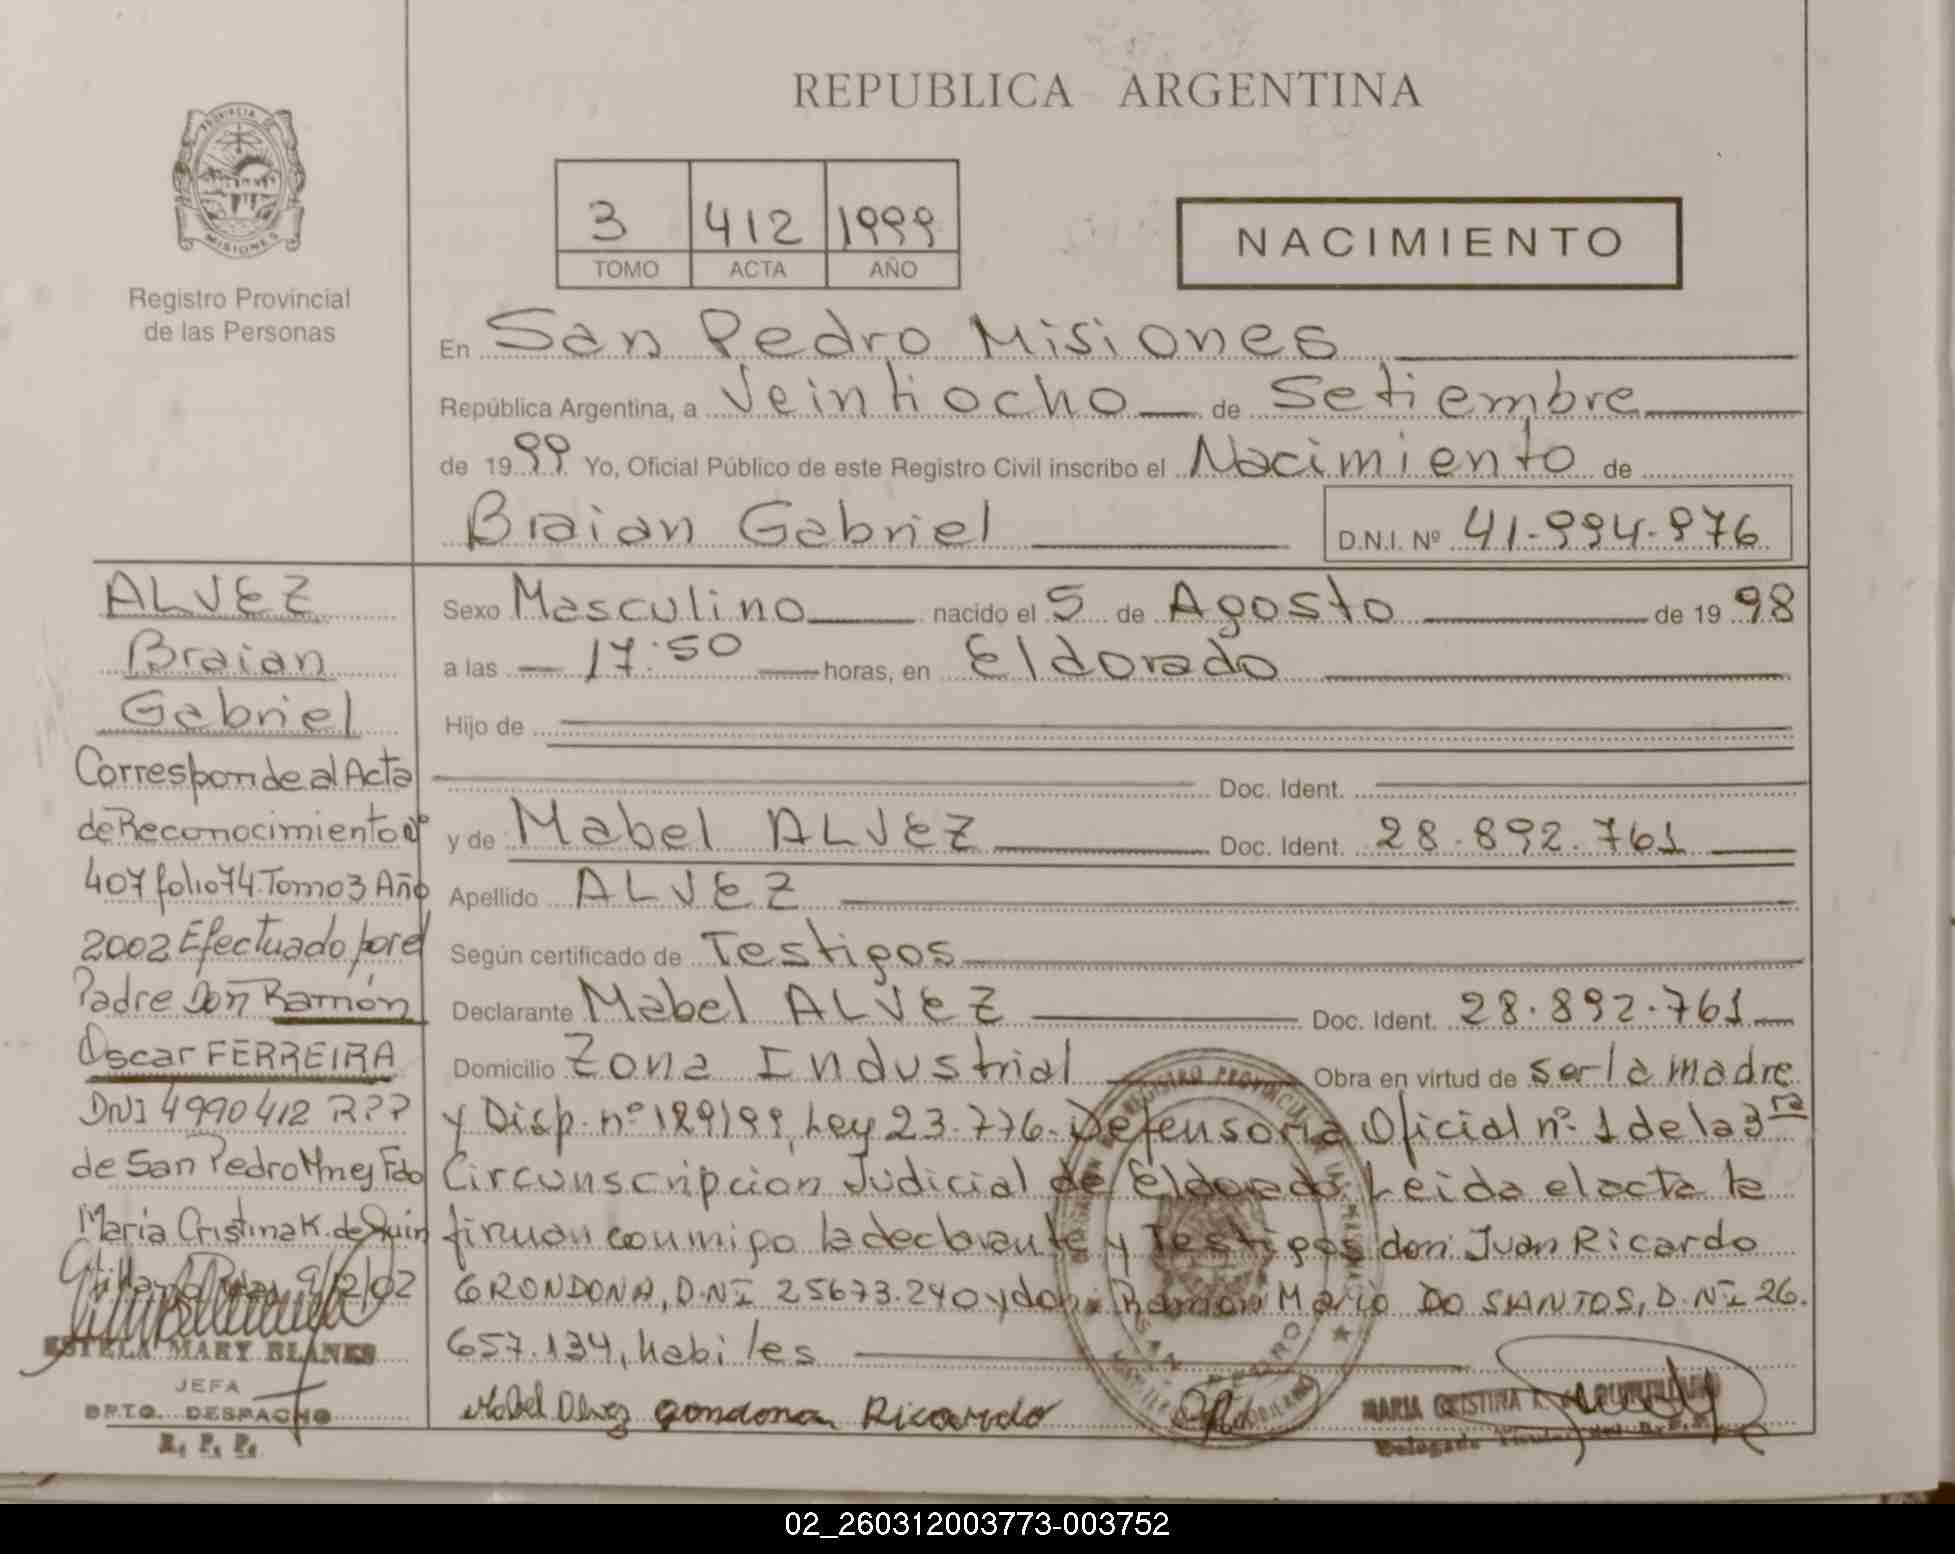 REPUBLICA ARGENTINA
PROVINCIA DE
MISIONES
Registro Provincial
de las Personas
3 412 1999
TOMO ACTA AÑO
NACIMIENTO
En San Pedro Misiones
República Argentina, a Veintiocho de Setiembre
de 1999 Yo, Oficial Público de este Registro Civil inscribo el Nacimiento de
Braian Gabriel D.N.I. Nº 41.994.976
Sexo Masculino nacido el 5 de Agosto de 1998
a las 17:50 horas, en Eldorado
Hijo de
Doc. Ident.
y de Mabel ALVEZ Doc. Ident. 28.892.761
Apellido ALVEZ
Según certificado de Testigos
Declarante Mabel ALVEZ Doc. Ident. 28.892.761
Domicilio Zona Industrial Obra en virtud de ser la madre
y Disp. nº 129/99, Ley 23.776. Defensoria Oficial nº 1 de la 3ra
Circunscripcion Judicial de Eldorado. Leida el acta la
firman conmigo la declarante y Testigos don: Juan Ricardo
GRONDONA, D.N.I 25673.240 y don: Ramon Mario DO SANTOS, D.N.I 26.
657.134, habiles
Mabel Alvez Gondona Ricardo
MARIA CRISTINA K.
ALVEZ
Braian
Gabriel
Corresponde al Acta
de Reconocimiento nº
407 folio 74 Tomo 3 Año
2002 Efectuado por el
Padre Don Ramón
Oscar FERREIRA
DNI 4990412 R??
de San Pedro Mnes Fdo
María Cristina K. de Quin
9/12/02
ESTELA MARY BLANES
JEFA
DPTO. DESPACHO
R. P. P.
02_260312003773-003752